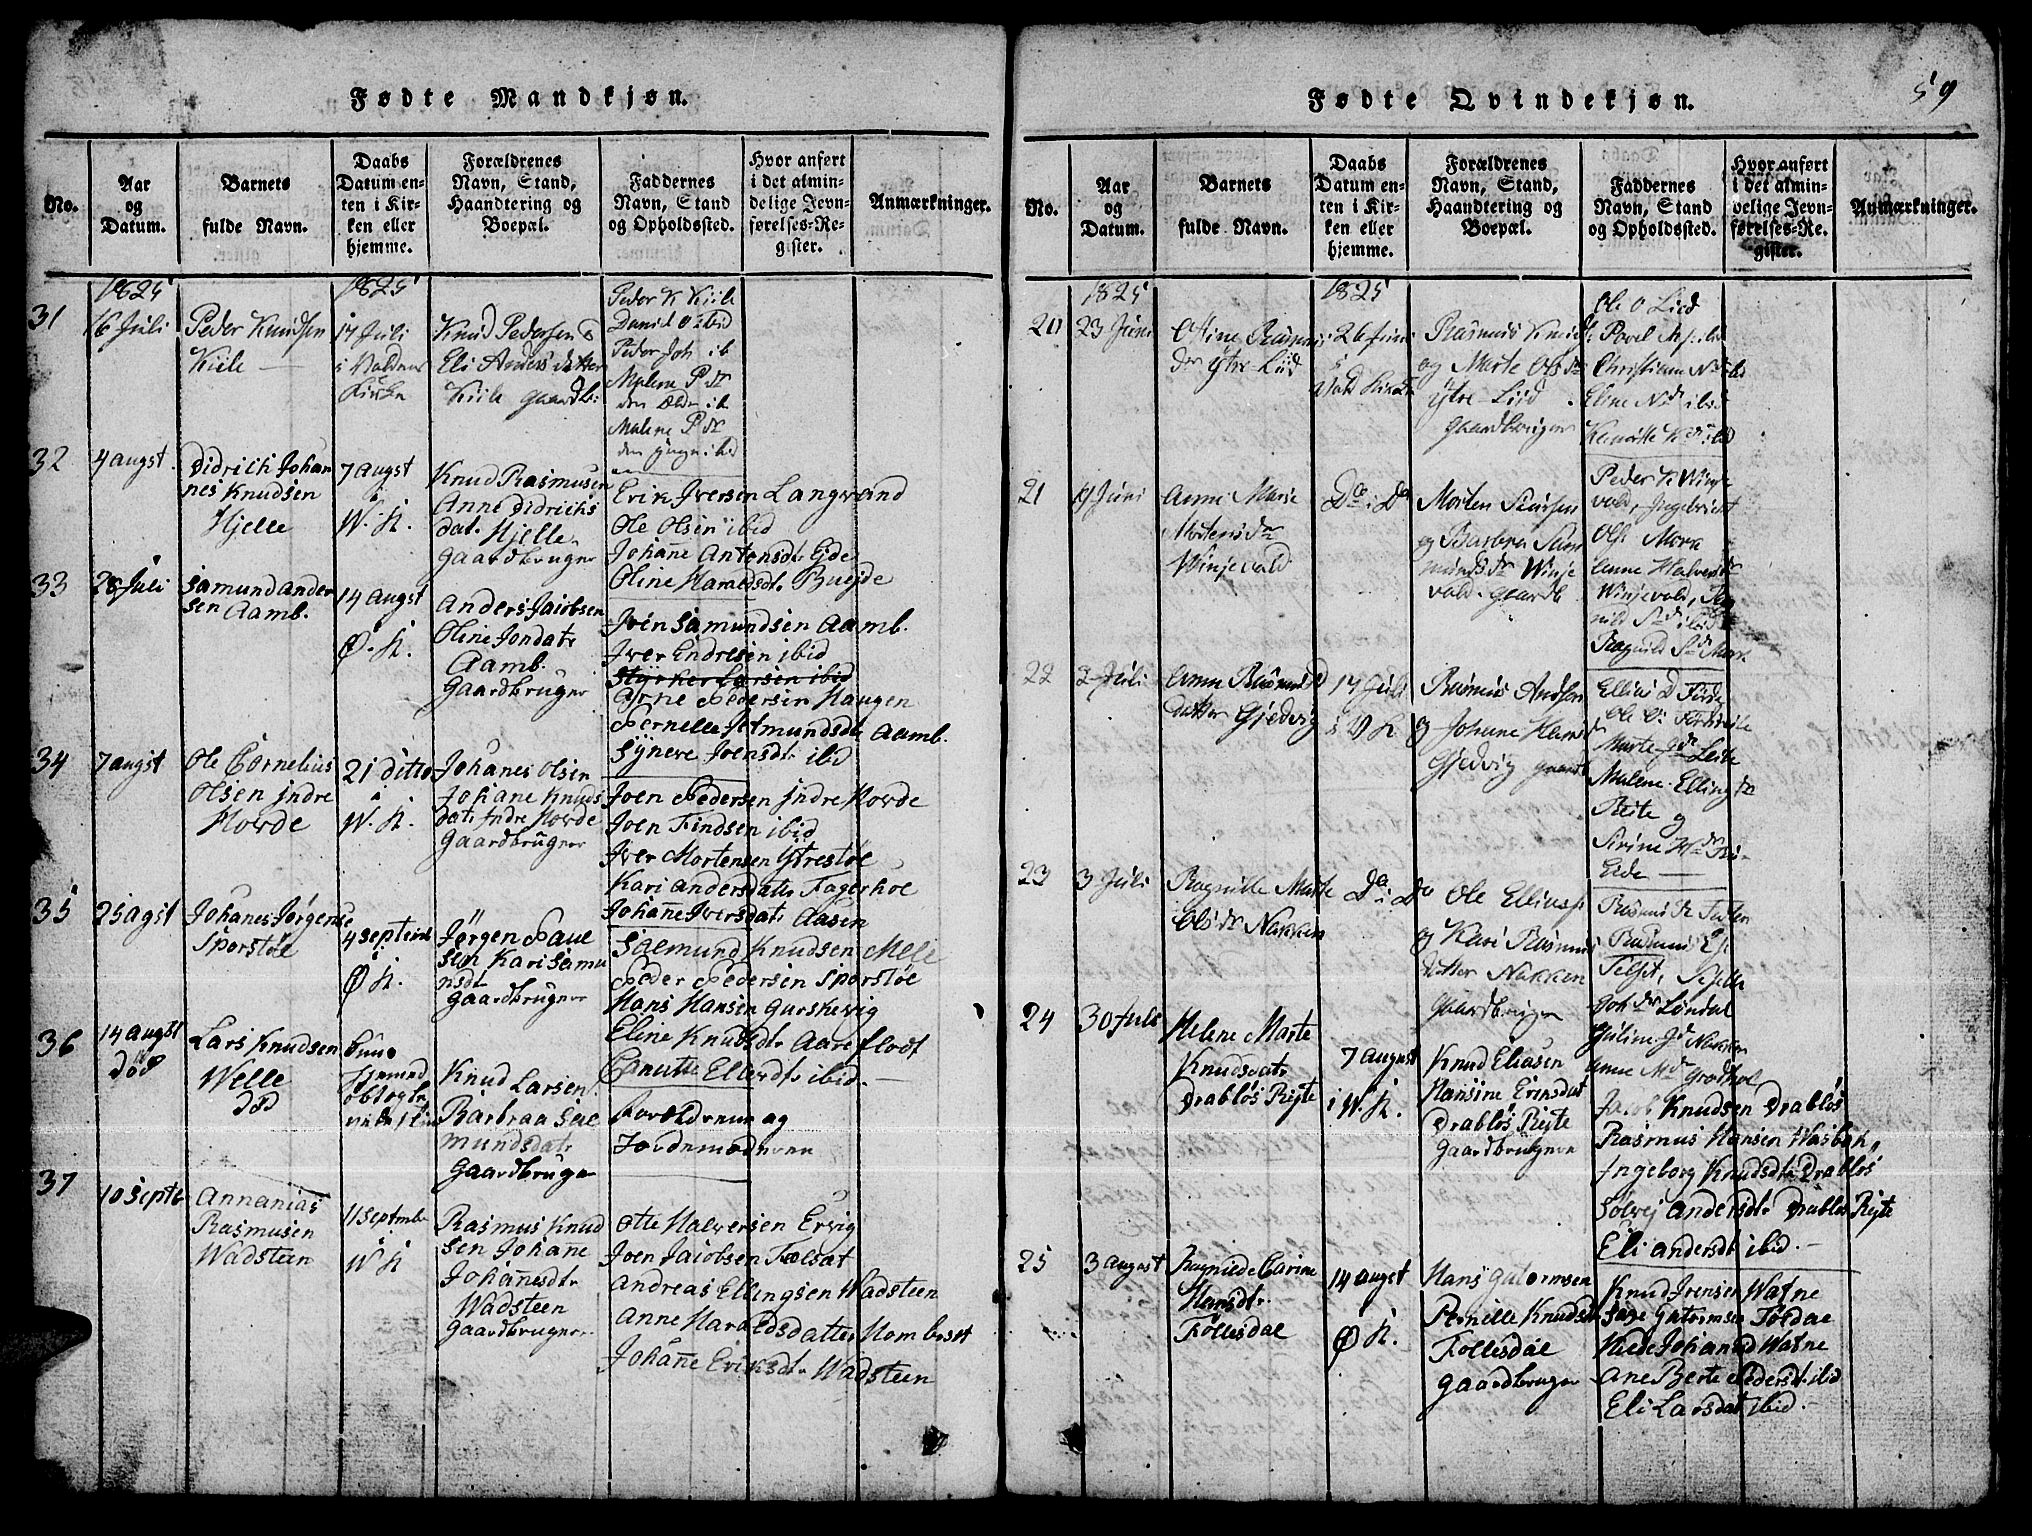 Fødte Mandkjøn.
No.
Aar
og
Datum.
Barnets
fulde Navn.
Daabs
Datum en-
ten i Kir-
ken eller
hjemme.
Forældrenes
Navn, Stand,
Haandtering og
Boepæl.
Faddernes
Navn, Stand
og Opholdssted.
Hvor anført
i det almin-
delige Jevn-
førelses-Re-
gister.
Anmærkninger.
31
1825
16 Juli
Peder Knudsen
Kiile
1825
17 Juli
i Voldens
Kirke
Knud Pedersen
Eli Andersdatter
Kiile gaardb:
Peder K Kiile
Daniel O ibid
Peder Joh ib
Malene P dr
den Ældr ib
Malene P dr
den yngr ibid
32
4 augst.
Didrich Johan
nes Knudsen
Hjelle
7 augst
W. K.
Knud Rasmusen
Anne Didrichs
dat. Hjelle
gaardbruger
Erik Iversen Langvand
Ole Olsen ibid
Johane Antonsdt. Ejde
Oline Haraldsdt. Buejde
33
28 Juli
Samund Ander
sen Aamb.
14 augst
Ø. K.
Anders Jacobsen
Oline Jondatr
Aamb.
gaardbruger
Joen Samundsen Aamb.
Iver Endresen ibid
Styrker Larsen ibid
Arne Pedersen Haugen
Pernelle Jetmundsdt Aamb.
Syneve Joensdt. ibid
34
7 augst
Ole Cornelius
Olsen Indre
Hovde
21 ditto
W. K.
Johanes Olsen
Johane Knuds
datr Indre Hovde
gaardbruger
Joen Pedersen Indre Hovde
Joen Findsen ibid
Iver Mortensen Ytrestøe
Kari Andersdatr Fagerhoe
Johanne Iversdatr Aasen
35
25 agst
Johanes Jørgense
Sporstøe
4 Septemb
Ø K.
Jørgen Paul
sen Kari Samu
nsdt.
gaardbruger
Saemund Knudsen Mele
Peder Pedersen Sporstøe
Hans Hansen Gurskevig
Eline Knudsdtr Aareflodt
Canutte Ellerdts ibid.
36
14 augst
død
Lars Knudsen
Welle
død
Knud Larsen
Barbraa Sae
mundsdatr
gaardbruger
Forældrene og
Jordemoderen
37
10 Septb
Annanias
Rasmusen
Wadsteen
11 Septmbr
W K
Rasmus Knud
sen Johane
Johannesdtr
Wadsteen
gaardbruger
Otte Halversen Ervig
Joen Jacobsen Folsæt
Andreas Ellingsen Wadsteen
Anne Haraldsdatter Homberset
Johanne Eriksdtr Wadsteen
59
Fødte Qvindekjøn.
No.
Aar
og
Datum.
Barnets
fulde Navn.
Daabs
Datum en-
ten i Kir-
ken eller
hjemme.
Forældrenes
Navn, Stand,
Haandtering og
Boepæl.
Faddernes
Navn, Stand
og Opholdssted.
Hvor anført
i det almin-
delige Jevn-
førelses-Re-
gister.
Anmærkninger.
20
1825
23 Juni
Oline Rasmus
dtr Ytre-Liid
1825
26 Juni
Vold Kirke
Rasmus Knuds
og Marte Olsdr
Ytre Liid
gaardbruger
Ole O Liid
Povel
Christiane N dr ibid
Eline N dr ibid
21
19 Juni
Anne Marie
Mortensdr
Winjevold
Do i Do
Morten
og Barbra Sam
mundsdr Winje
vold. gaardb
Peder K Winje
vold, Ingebricht
Ols Mork
Anne Halversdr
Winjevold,
Ragnild S dr Mork
22
2 Juli
Anne Rasmus
datter Gjedvig
17 Juli
i V K
Rasmus Andsen
og Johane Hans
Gjedvig gaardb
Marte
Malene Elling dr
Reite og
Eide
23
3 Juli
Ragnille Marte
Ols dr Nakken
Do i Do
Ole Ellingss
og Kari Rasmus
datter Nakken
gaardbruger
Juline J dr Nakken
Anne M dr Grodhol
24
30 Juli
Helene Marte
Knudsdatr
Drabløs Rejte
7 august
i W. K.
Knud Eliasen
Hansine Erensdat
Drabløs Rejte
gaardbruger
Jacob Knudsen Drabløs
Rasmus Hansen Wasbak,
Ingeborg Knudsdtr Drabløs
Solvej Andersdtr Drabløs Rejte
Eli Andersdt ibid.
25
3 august
Ragnilde Carine
Hansdtr.
Follesdal
14 augst
Ø K.
Hans Gutormsen
Pernille Knudsdt
Follesdal
gaardbruger
Knud Irensen Watne
Sage Gutormsen Foldal
Hilde Johansd Watne
Ane Berte Pedersdt. ibid
Eli Larsdat ibid.